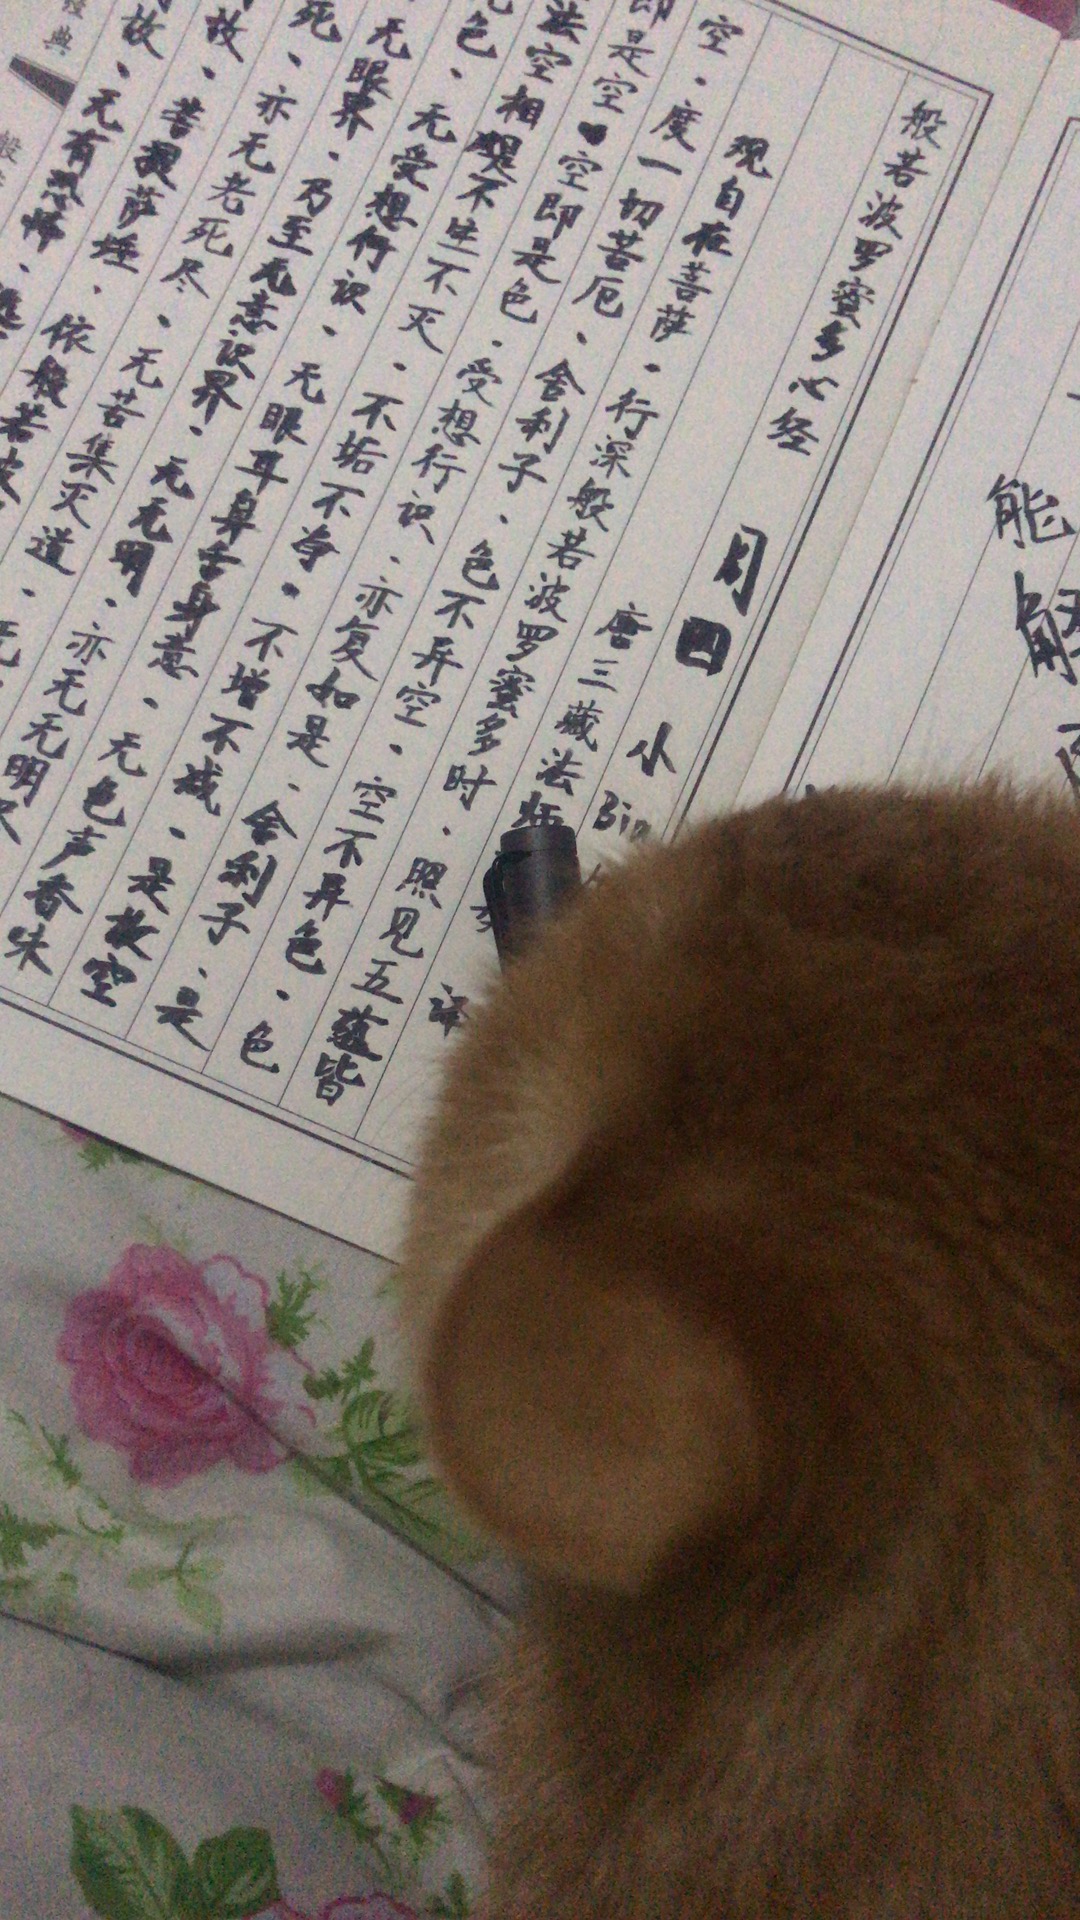 般若波罗蜜多心经
唐三藏法
译
观自在菩萨、行深般若波罗蜜多时、照见五蕴皆
空、度一切苦厄、舍利子、色不异空、空不异色、色
即是空、空即是色、受想行识、亦复如是、舍利子、是
法空相、不生不灭、不垢不净、不增不减、是故空
色、无受想行识、无眼耳鼻舌身意、无色声香味
无眼界、乃至无意识界、无无明、亦无无明尽
死、亦无老死尽、无苦集灭道、无
故、菩提萨埵、依般若波
故、无有恐怖、
小
Bin
能
解
典
般